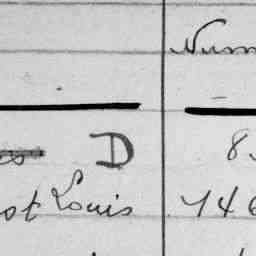 Num
D 8
ot Louis 146